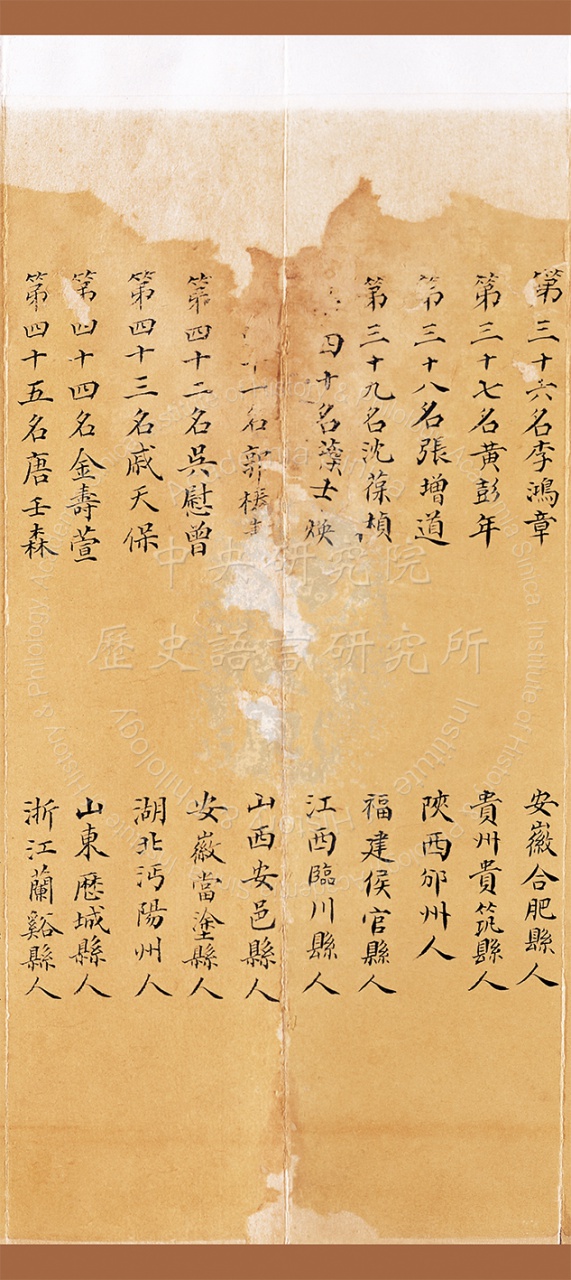 第三十六名李鴻章　安徽合肥縣人
第三十七名黃彭年　貴州貴筑縣人
第三十八名張增道　陝西邠州人
第三十九名沈葆楨　福建侯官縣人
四十名士煥　江西臨川縣人
十一名郭　山西安邑縣人
第四十二名吳慰曾　安徽當塗縣人
第四十三名戚天保　湖北沔陽州人
第四十四名金壽萱　山東歷城縣人
第四十五名唐壬森　浙江蘭谿縣人
中央研究院
歷史語言研究所
Institute of History & Philology, Academia Sinica